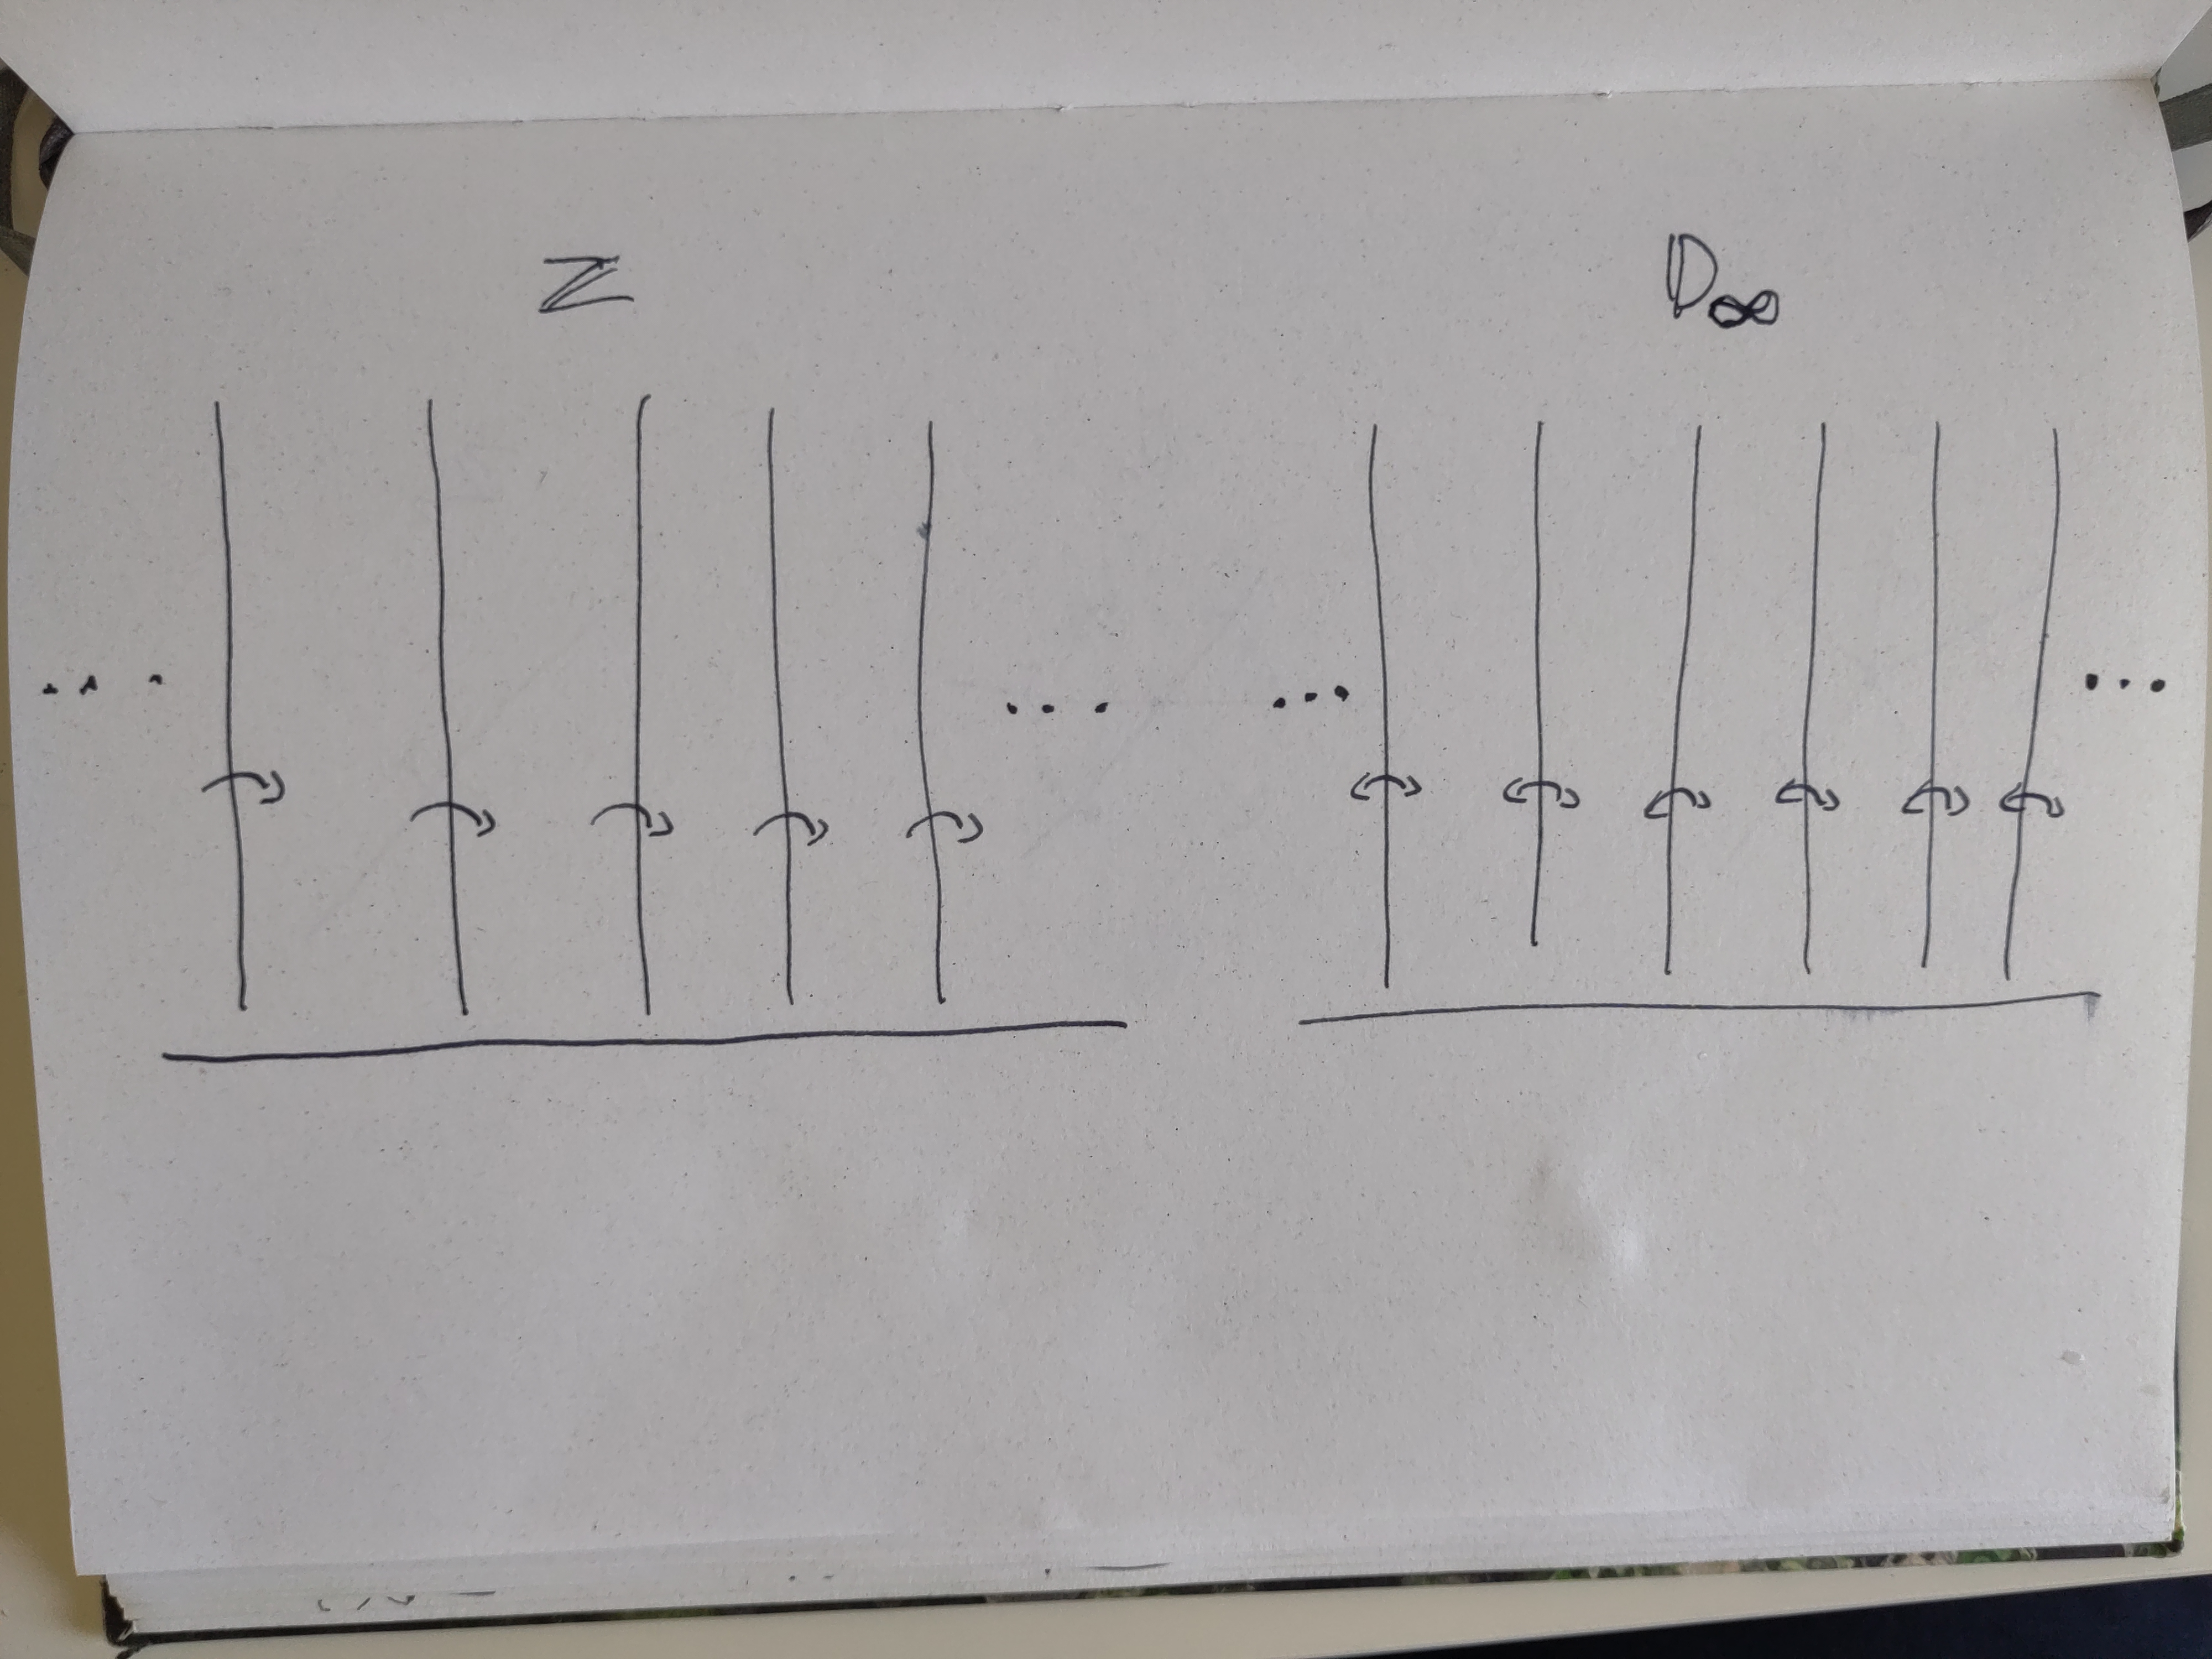 ℤ
D∞
... ...
... ...